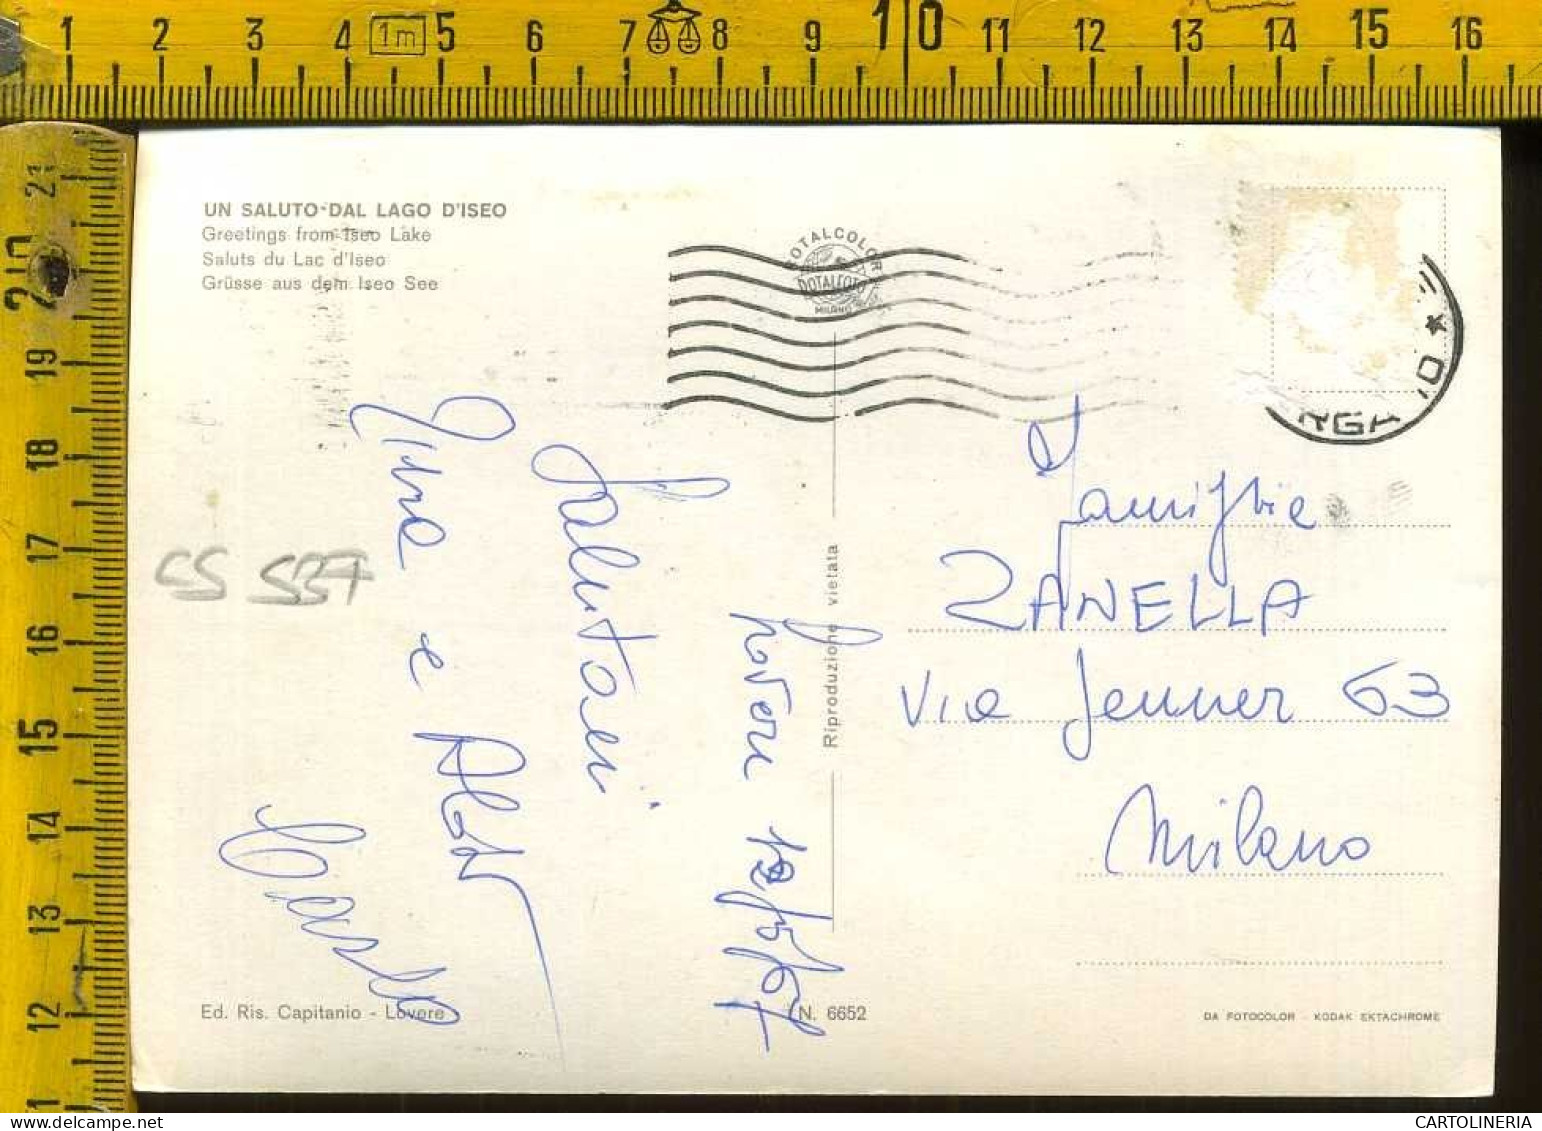 1 2 3 4 1m 5 6 7 8 9 10 11 12 13 14 15 16
21
20
19
18
17
16
15
14
13
12
11
UN SALUTO DAL LAGO D'ISEO
Greetings from Iseo Lake
Saluts du Lac d'Iseo
Grüsse aus dem Iseo See
TOTALCOLOR
DOTALFOTO
MILANO
RGA
CS 537
Lovere
Salutoni
e Aldo
Riproduzione vietata
Famiglia
ZANELLA
Via Jenner 63
Milano
Ed. Ris. Capitanio - Lovere
N. 6652
DA FOTOCOLOR - KODAK EKTACHROME
CARTOLINERIA